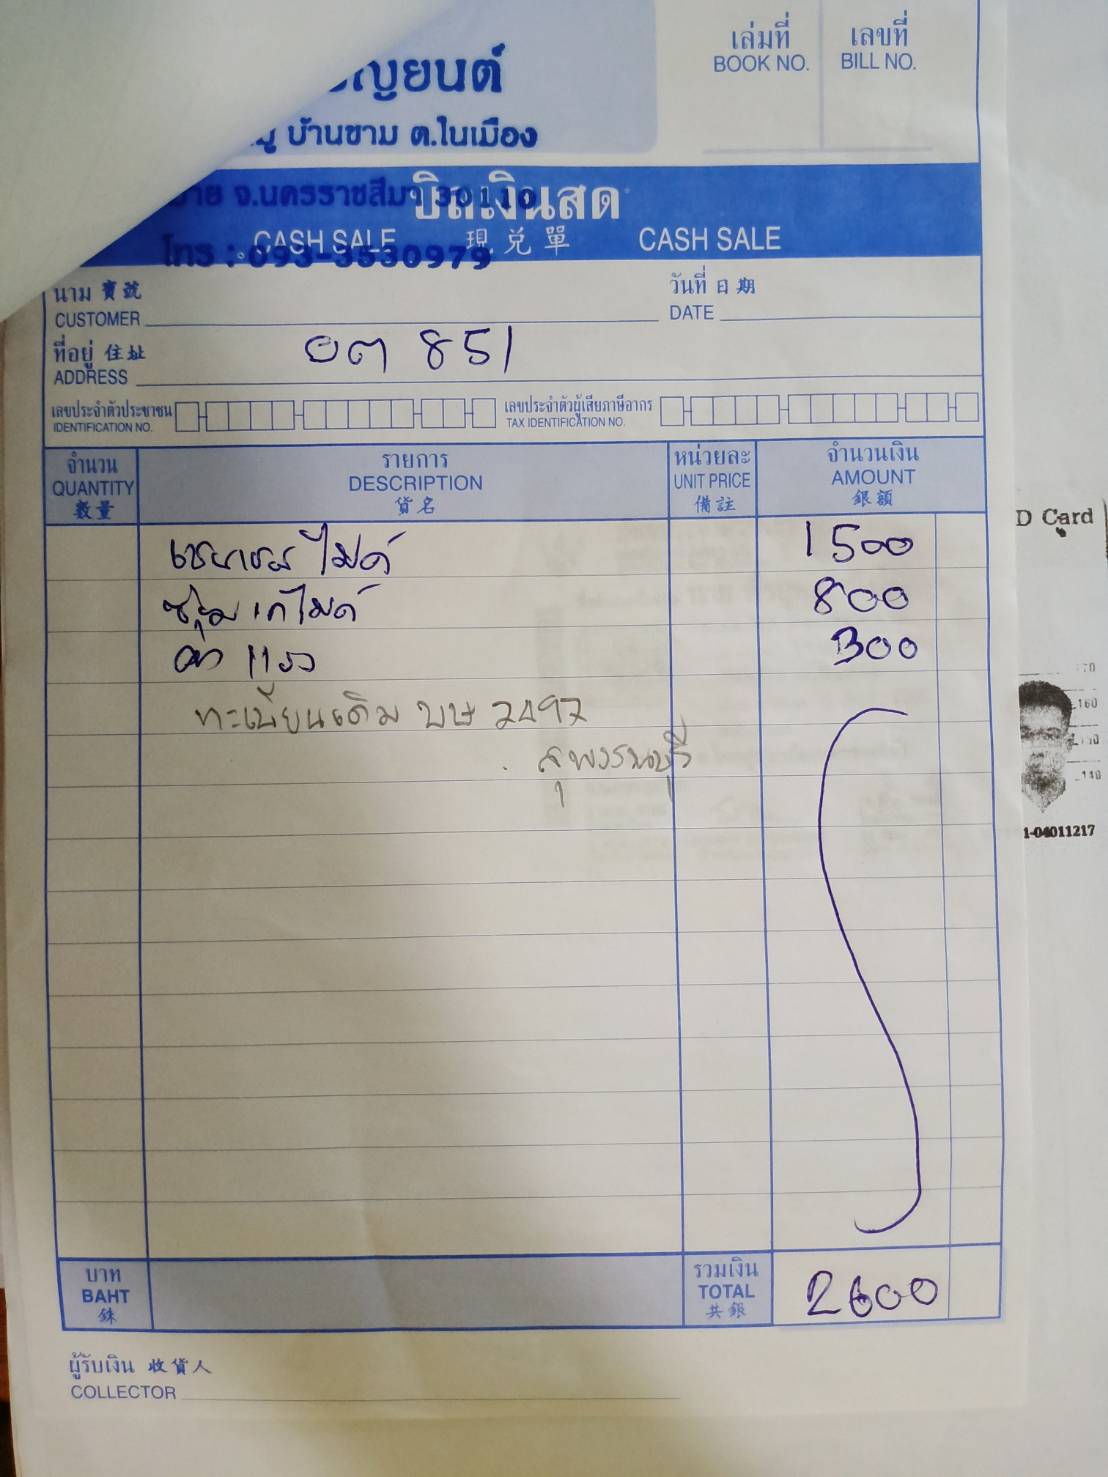 เล่มที่ เลขที่
BOOK NO. BILL NO.
บ้านขาม ต.ในเมือง
จ.นครราชสีมา 30110
บิลเงินสด
CASH SALE 現兌單 CASH SALE
โทร : 093-3530979
นาม 寶號 วันที่ 日期
CUSTOMER DATE
ที่อยู่ 住址 ๐ต 851
ADDRESS
เลขประจำตัวประชาชน เลขประจำตัวผู้เสียภาษีอากร
IDENTIFICATION NO. TAX IDENTIFICATION NO.
จำนวน รายการ หน่วยละ จำนวนเงิน
QUANTITY DESCRIPTION UNIT PRICE AMOUNT
數量 貨名 備註 銀額
D Card
ไมค์ 1500
800
ค่าแรง 300
ทะเบียนเดิม บษ 2497
สุพรรณบุรี
160
140
1-04011217
บาท รวมเงิน
BAHT TOTAL 2600
銖 共銀
ผู้รับเงิน 收貨人
COLLECTOR